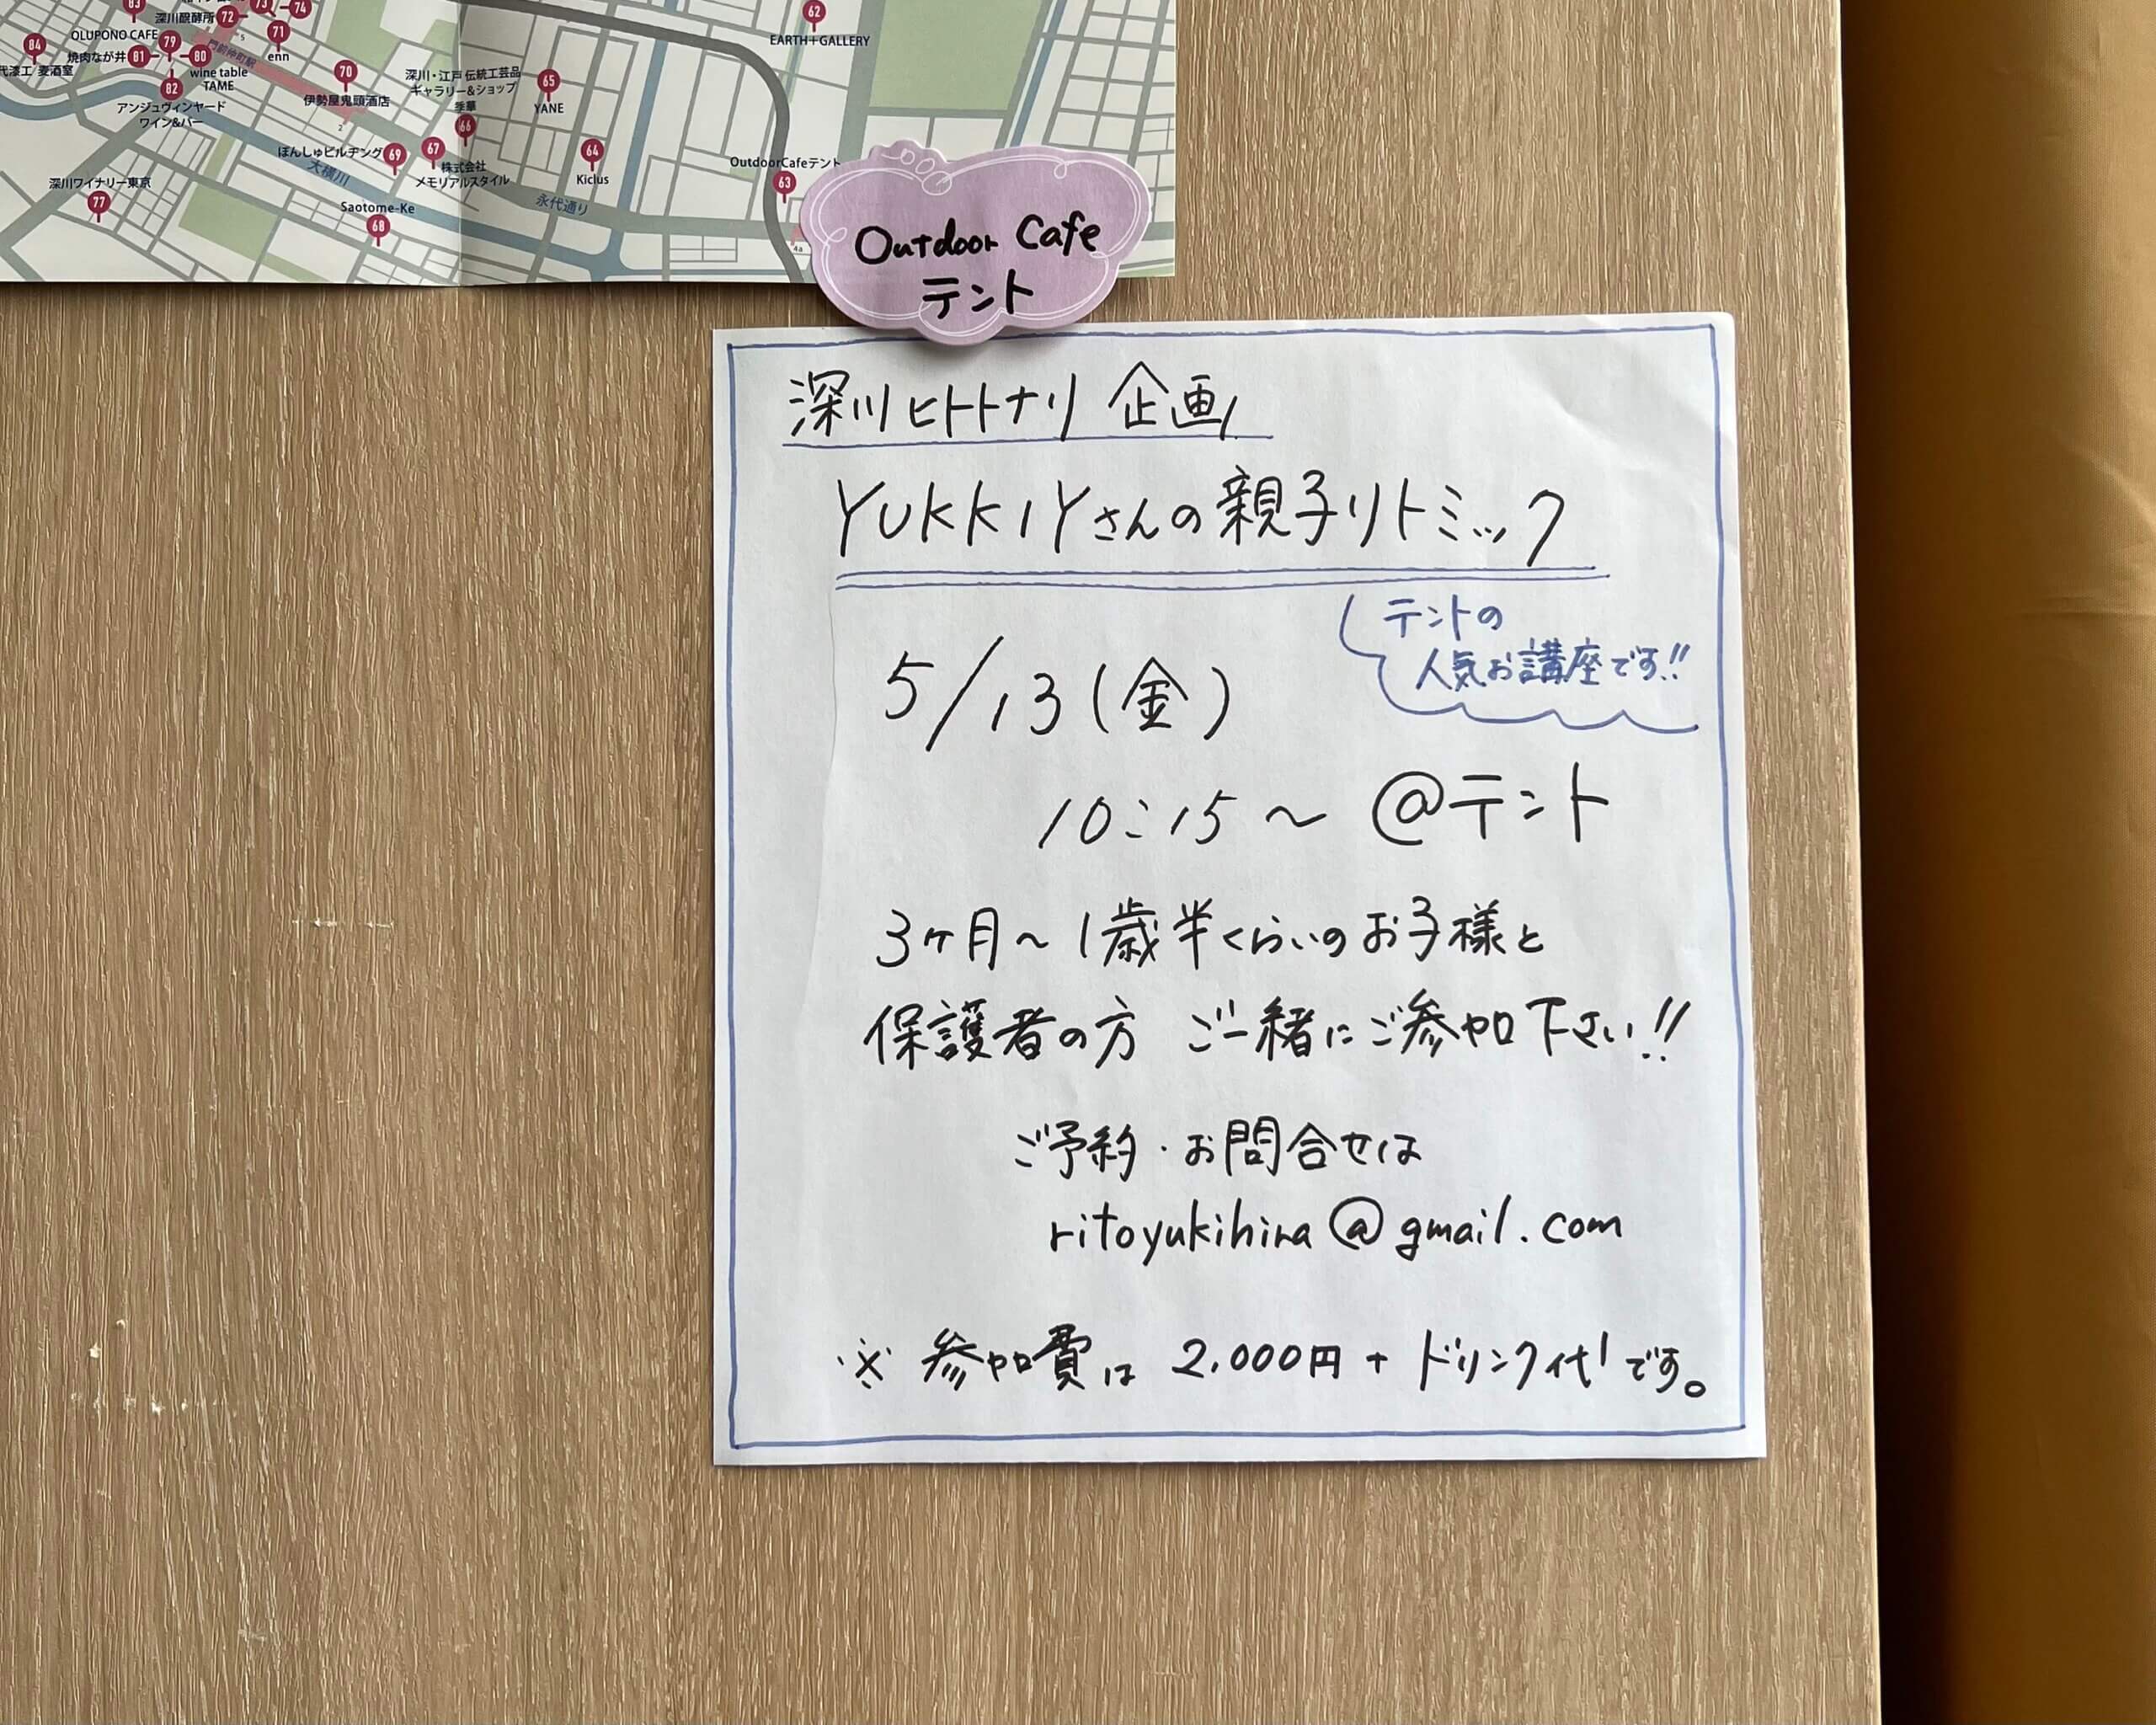 83
深川醸酵所 72
73
74
OLUPONO CAFE
79
71
enn
84
焼肉なが井 81
80
門前仲町駅
wine table
TAME
82
アンジュヴィンヤード
ワイン&バー
70
伊勢屋鬼頭酒店
2
深川・江戸 伝統工芸品
ギャラリー&ショップ
季華
66
65
YANE
62
EARTH+GALLERY
ぽんしゅビルヂング 69
67
株式会社
メモリアルスタイル
64
Kiclus
OutdoorCafeテント
63
大横川
永代通り
深川ワイナリー東京
77
Saotome-Ke
68
4a
Outdoor Cafe
テント
深川ヒトトナリ 企画
YUKKIYさんの親子リトミック
テントの
人気お講座です!!
5/13(金)
10:15~ @テント
3ヶ月~1歳半くらいのお子様と
保護者の方 ご一緒にご参加下さい!!
ご予約・お問合せは
ritoyukihira@gmail.com
※ 参加費は 2,000円 + ドリンク代です。